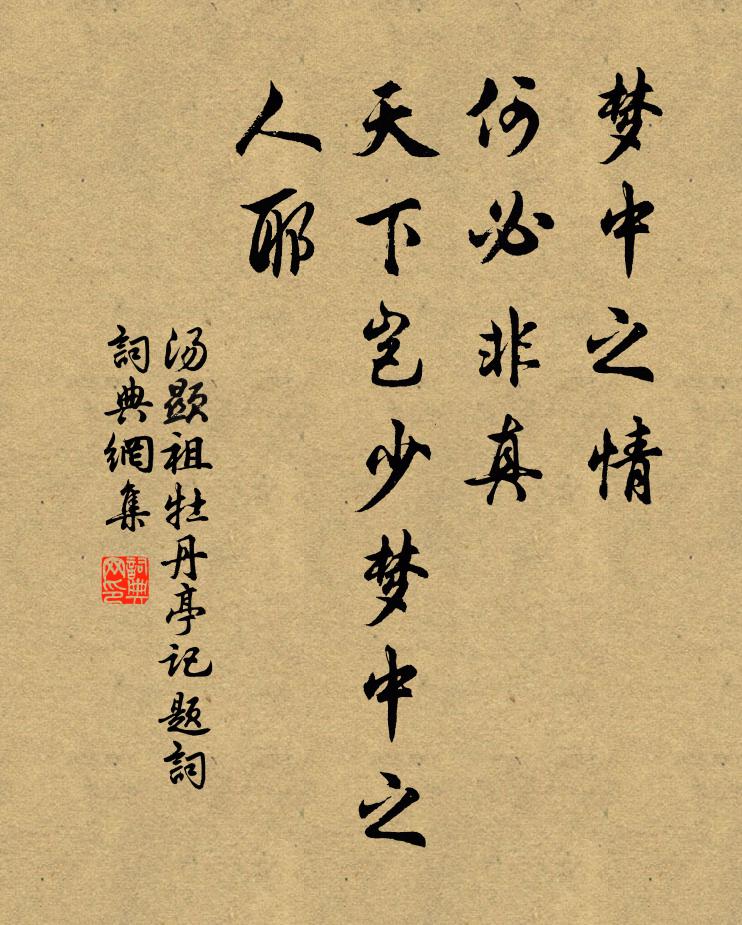 梦中之情
何必非真
天下岂少梦中之
人耶
汤顯祖牡丹亭记题詞
詞典網集
詞典
网印